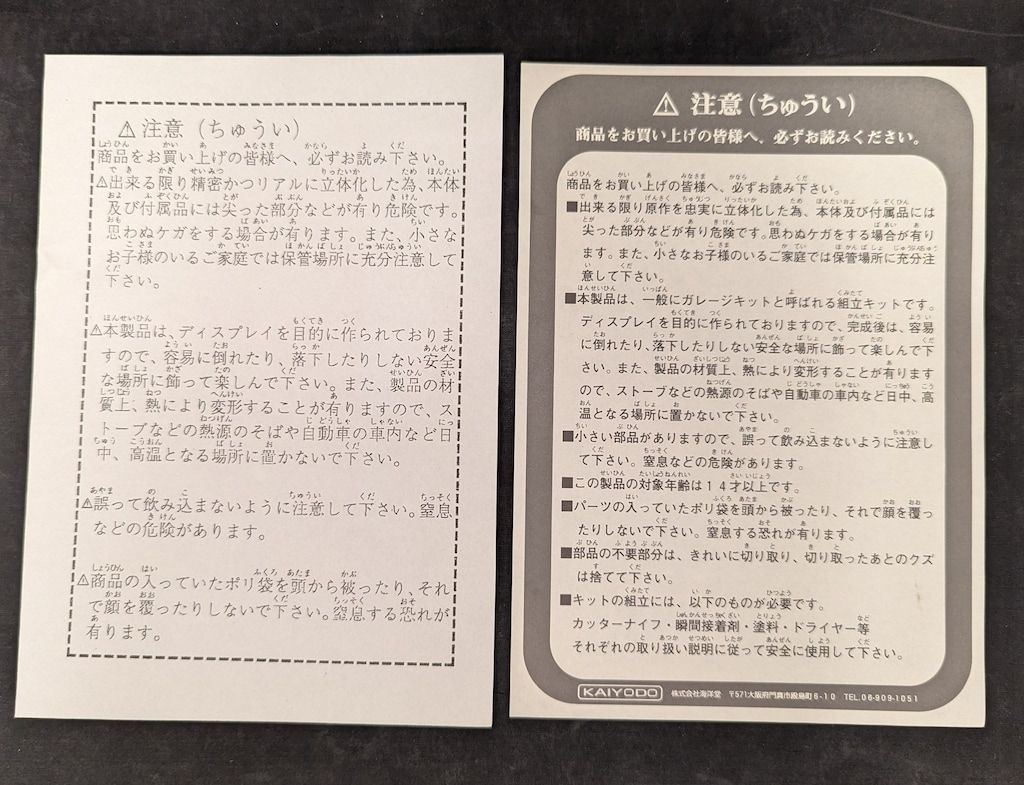 ⚠注意（ちゅうい）
商品をお買い上げの皆様へ、必ずお読み下さい。
⚠出来る限り精密かつリアルに立体化した為、本体
及び付属品には尖った部分などが有り危険です。
思わぬケガをする場合が有ります。また、小さな
お子様のいるご家庭では保管場所に充分注意して
下さい。
⚠本製品は、ディスプレイを目的に作られておりま
すので、容易に倒れたり、落下したりしない安全
な場所に飾って楽しんで下さい。また、製品の材
質上、熱により変形することが有りますので、ス
トーブなどの熱源のそばや自動車の車内など日
中、高温となる場所に置かないで下さい。
⚠誤って飲み込まないように注意して下さい。窒息
などの危険があります。
⚠商品の入っていたポリ袋を頭から被ったり、それ
で顔を覆ったりしないで下さい。窒息する恐れが
有ります。
⚠ 注意（ちゅうい）
商品をお買い上げの皆様へ、必ずお読みください。
商品をお買い上げの皆様へ、必ずお読み下さい。
■出来る限り原作を忠実に立体化した為、本体及び付属品には
尖った部分などが有り危険です。思わぬケガをする場合が有り
ます。また、小さなお子様のいるご家庭では保管場所に充分注
意して下さい。
■本製品は、一般にガレージキットと呼ばれる組立キットです。
ディスプレイを目的に作られておりますので、完成後は、容易
に倒れたり、落下したりしない安全な場所に飾って楽しんで下
さい。また、製品の材質上、熱により変形することが有ります
ので、ストーブなどの熱源のそばや自動車の車内など日中、高
温となる場所に置かないで下さい。
■小さい部品がありますので、誤って飲み込まないように注意し
て下さい。窒息などの危険があります。
■この製品の対象年齢は１４才以上です。
■パーツの入っていたポリ袋を頭から被ったり、それで顔を覆っ
たりしないで下さい。窒息する恐れが有ります。
■部品の不要部分は、きれいに切り取り、切り取ったあとのクズ
は捨てて下さい。
■キットの組立には、以下のものが必要です。
カッターナイフ・瞬間接着剤・塗料・ドライヤー等
それぞれの取り扱い説明に従って安全に使用して下さい。
KAIYODO 株式会社海洋堂 〒571大阪府門真市殿島町6-10 TEL.06-909-1051